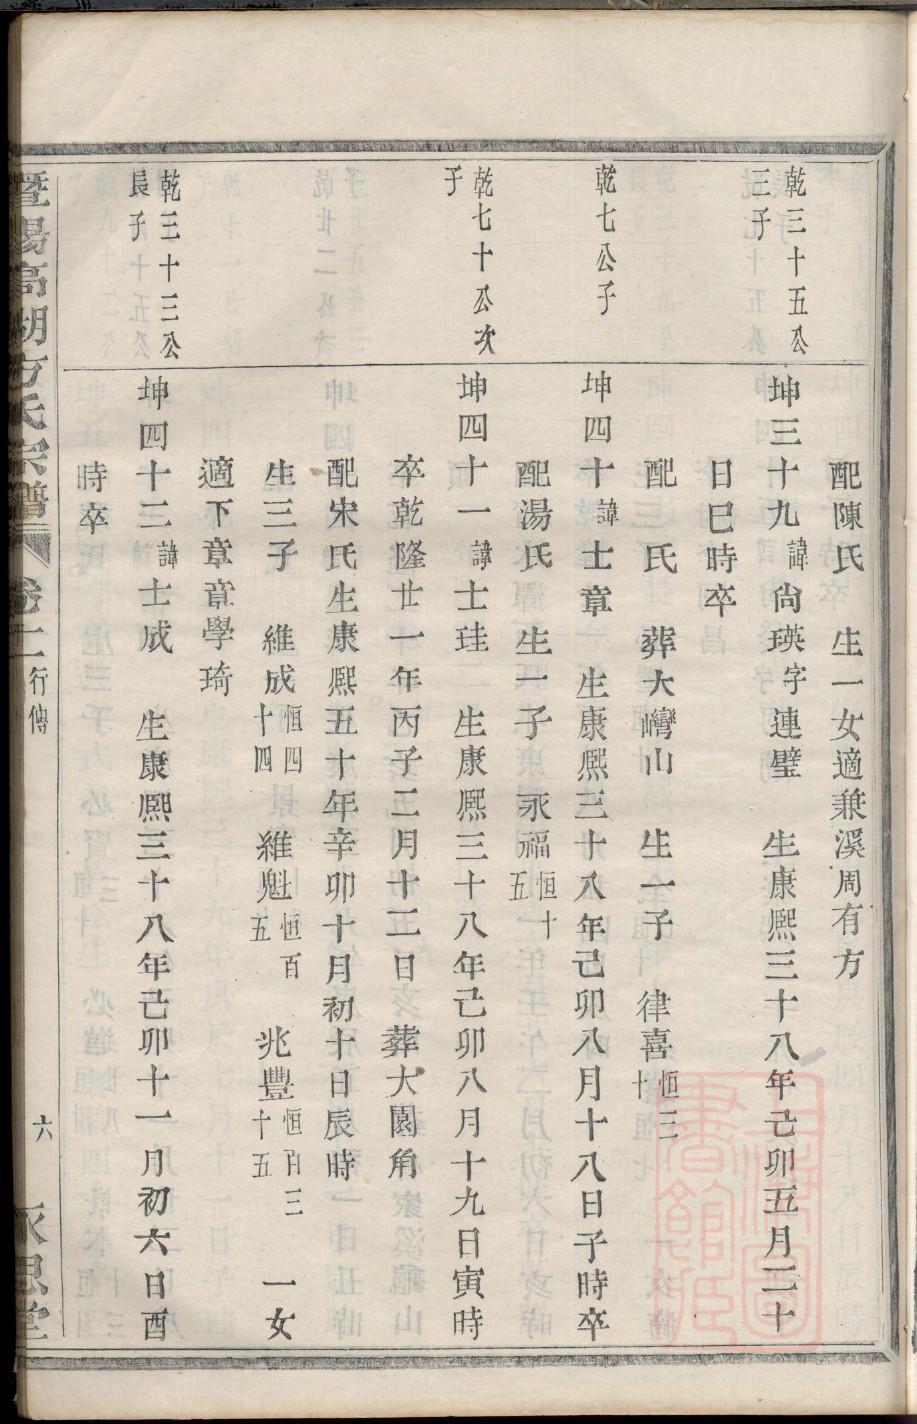 配陳氏 生一女適兼溪周有方
乾三十五公三子
坤三十九諱尙瑛字連璧 生康熙三十八年己卯五月二十
日巳時卒
配 氏 葬大巒山 生一子 律喜恒三十
乾七公子
坤四十諱士章 生康熙三十八年己卯八月十八日子時卒
配湯氏 生一子 永福恒十五
乾七十公次子
坤四十一諱士珪 生康熙三十八年己卯八月十九日寅時
卒乾隆廿一年丙子二月十二日 葬大園角
配宋氏生康熙五十年辛卯十月初十日辰時
生三子 維成恒四十四 維魁恒百五 兆豐恒百三十五 一女
適下章章學琦
乾三十三公長子
坤四十二諱士成 生康熙三十八年己卯十一月初六日酉
時卒
暨陽高湖方氏宗譜 卷十二 行傳 六 永思堂